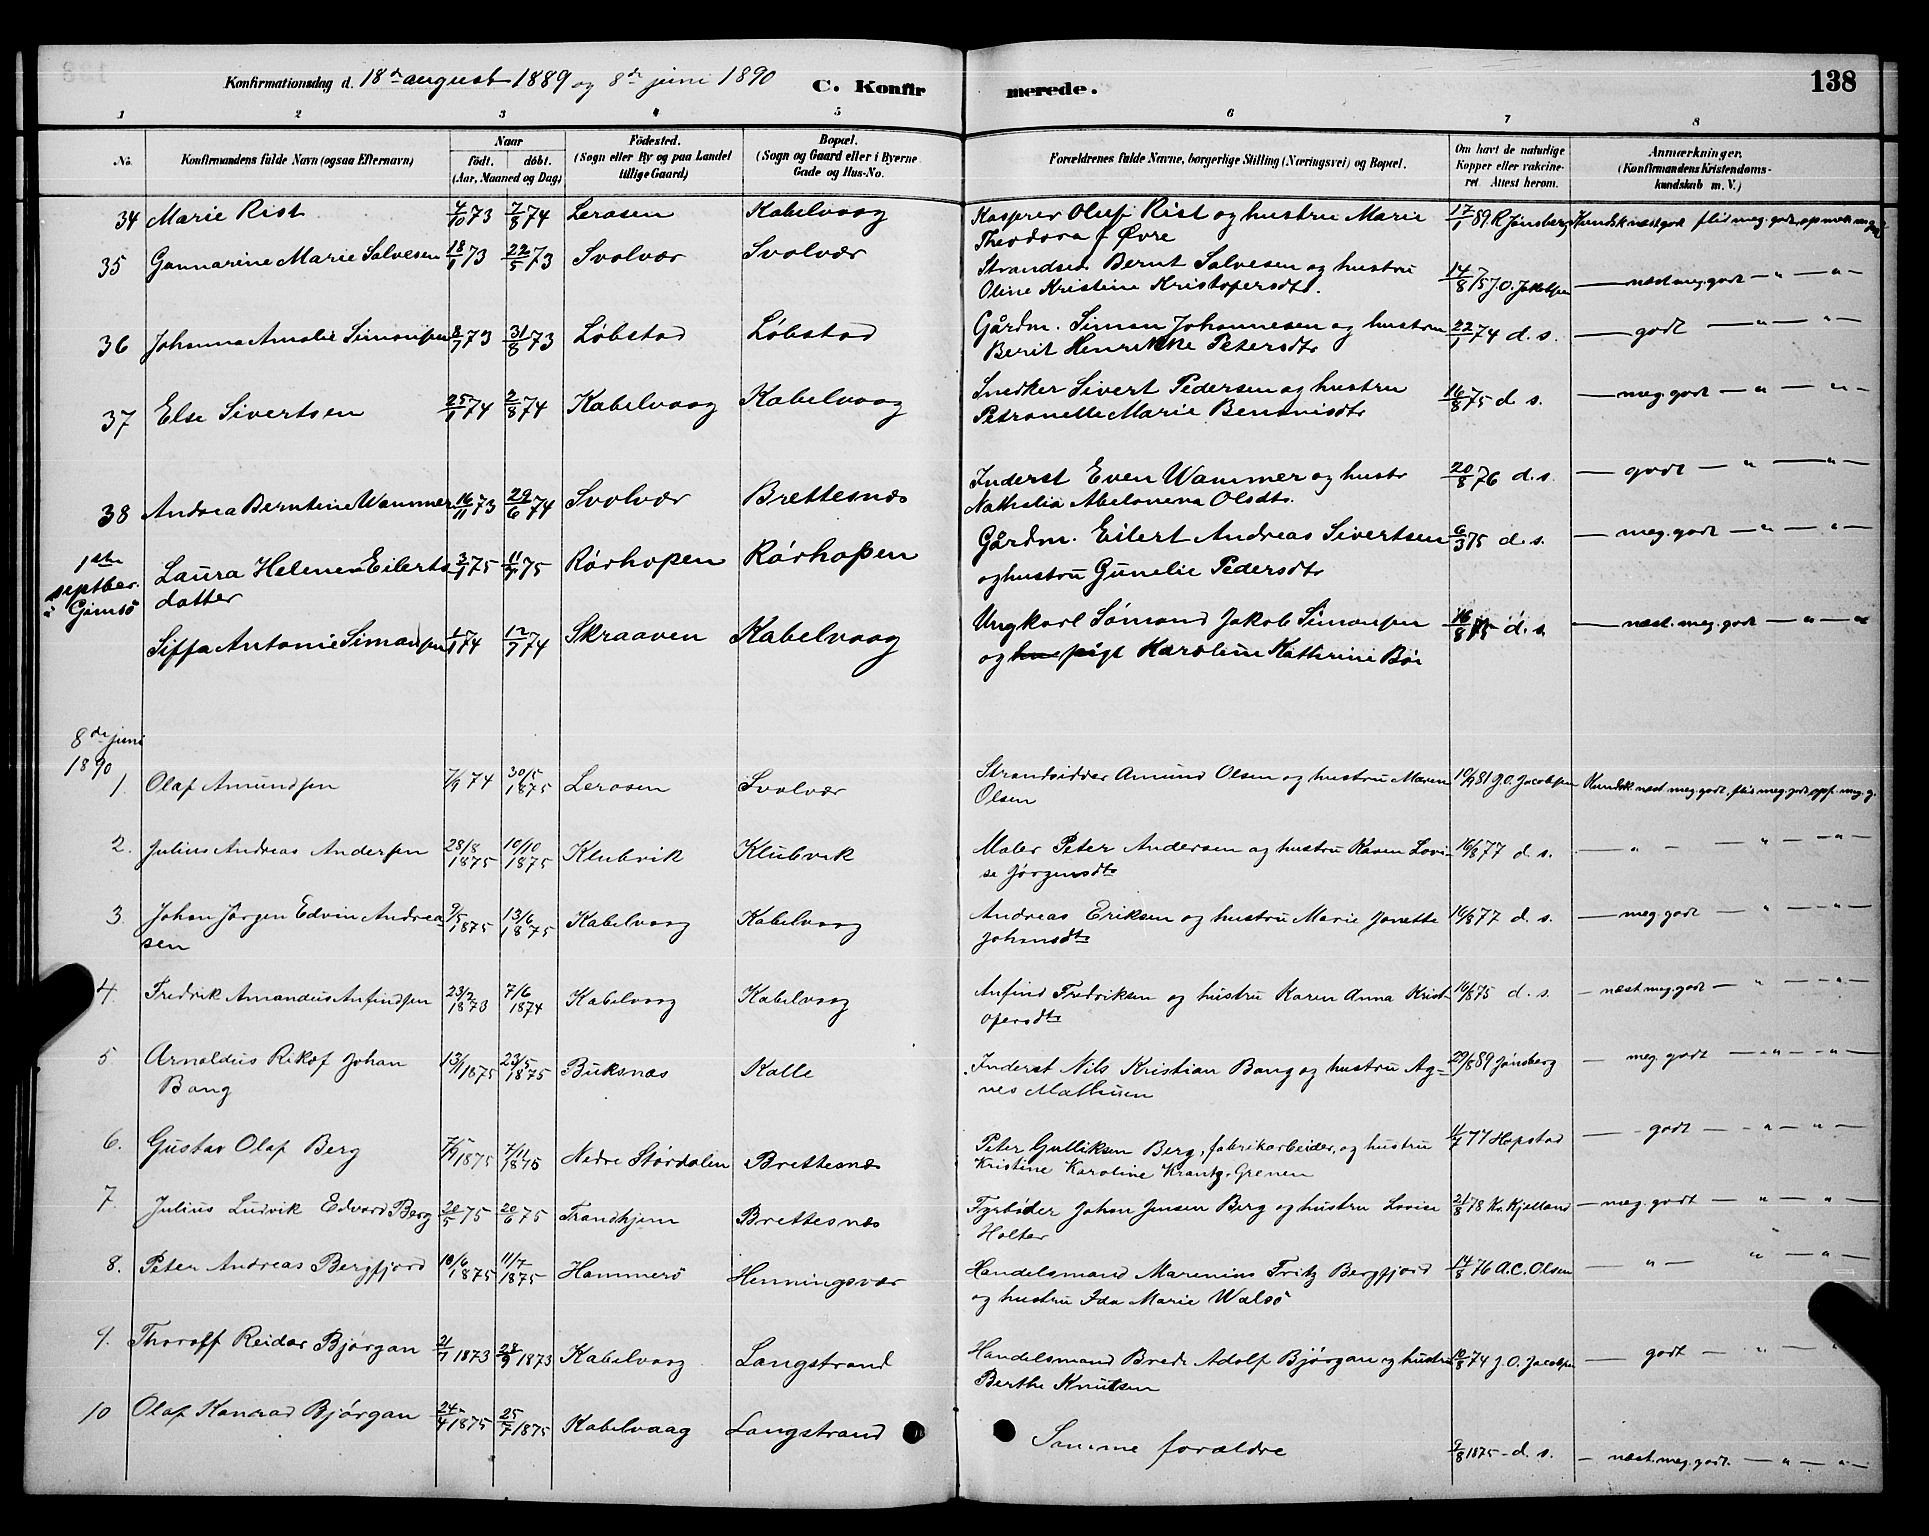 138
Konfirmationsdag d. 18de august 1889 og 8de juni 1890
C. Konfirmerede.
1 2 3 4 5 6 7 8
No. Konfirmandens fulde Navn (ogsaa Efternavn) Naar födt. döbt. (Aar, Maaned og Dag) Födested. (Sogn eller By og paa Landet tillige Gaard) Bopæl. (Sogn og Gaard eller i Byerne Gade og Hus-No. Forældrenes fulde Navne, borgerlige Stilling (Næringsvei) og Bopæl. Om havt de naturlige Kopper eller vakcineret. Attest herom. Anmærkninger. (Konfirmandens Kristendomskundskab m. V.)
34 Marie Rist 4/10 73 7/8 74 Lerosen Kabelvaag Kasprer Oluf Rist og hustru Marie 17/1 89. R Jönsberg Kundsk næst godt flid meg. godt
Theodora f Øvre
35 Gunnarine Marie Salvesen 18/1 73 22/5 73 Svolvær Svolvær Strandsid. Bernt Salvesen og hustru 14/8 75 J.O. Jakobsen — næst meg. godt — " — " —
Oline Kristine Kristofersdtr.
36 Johanna Amalie Simonsen 8/7 73 31/8 73 Løbstad Løbstad Gårdm. Simon Johannesen og hustru 22/1 74 d. s. — godt — " — " —
Berit Henrikke Petersdtr
37 Else Sivertsen 25/1 74 2/8 74 Kabelvaag Kabelvaag Snedker Sivert Pedersen og hustru 16/8 75 d. s. — meg. godt — " — " —
Petronelle Marie Bendvisdtr
38 Andrea Berntine Wammer 16/11 73 29/6 74 Svolvær Brettesnæs Inderst Even Wammer og hustr 20/8 76 d. s. — godt — " — " —
Nathalia Abelonena Olsdtr.
1ste septber. i Gimsö Laura Helene Eilerts 3/1 75 11/7 75 Rörhopen Rörhopen Gårdm. Eilert Andreas Sivertsen 6/3 75 d. s. — meg. godt — " — " —
datter og hustru Gunelie Pedersdtr
Siffa Antonie Simonsen 1/1 74 12/7 74 Skraaven Kabelvaag Ungkarl Sømand Jakob Simonsen 16/8 75 d. s. — næst. meg. godt — " — "
og hu pige Karoline Kathrine Böe
8de juni
1890
1. Olaf Amundsen 7/9 74 30/5 1875 Lerosen Svolvær Strandsidder Amund Olsen og hustru Maren 10/9 81 J.O. Jacobsen Kundsk næst meg godt, flid meg. godt, opf. meg. g.
Olsen
2. Julius Andreas Andersen 28/8 1875 10/10 1875 Klubvik Klubvik Maler Peter Andersen og hustru Karen Lovi- 16/8 77 d. s. — " — — " — " —
se Jörgensdtr
3. Johan Jørgen Edvin Andrea- 9/5 1875 13/6 1875 Kabelvaag Kabelvaag Andreas Eriksen og hustru Marie Janette 16/8 77 d. s. — meg. godt — " — " —
sen Johansdtr
4. Fredrik Amandus Anfindsen 23/2 1873 7/6 1874 Kabelvaag Kabelvaag Anfind Fredriksen og hustru Karen Anna Krist- 16/8 75 d. s. — næst meg. godt — " — " —
ofersdtr
5 Arnoldus Rikof Johan 13/1 1875 23/5 1875 Buksnæs Kalle Inderst Nils Kristian Bang og hustru Ag- 29/8 89 Jönsberg — meg. godt — " — " —
Bang nes Mathisen
6. Gustav Olaf Berg 7/9 1875 7/11 1875 Nedre Stördalen Brettesnæs Peter Gulliksen Berg, fabrikarbeider, og hustru 11/7 77 Hopstad — godt — " — " —
Kristine Karoline Krantz. Grenen
7. Julius Ludvik Edvard Berg 20/5 75 20/6 75 Trondhjem Brettesnæs Fyrböder Johan Jensen Berg og hustru Lovise 21/8 78 Kr. Kjelland — meg. godt — " — " —
Holter
8. Peter Andreas Bergfjord 10/6 1875 11/7 1875 Hammerö Henningsvær Handelsmand Marenius Fritz Bergfjord 14/8 76 A.C. Olsen — " — " — " —
og hustru Ida Marie Walsö
9. Thoralf Reidar Bjørgan 21/7 1873 28/9 1873 Kabelvaag Langstrand Handelsmand Brede Adolf Bjørgan og hustru 18/8 74 J.O. Jacobsen — godt — " — " —
Berthe Knutsen
10 Olaf Konrad Bjørgan 24/4 1875 25/7 1875 Kabelvaag Langstrand Samme forældre 9/8 1875 - d. s. — næst. meg. godt. — " — " —